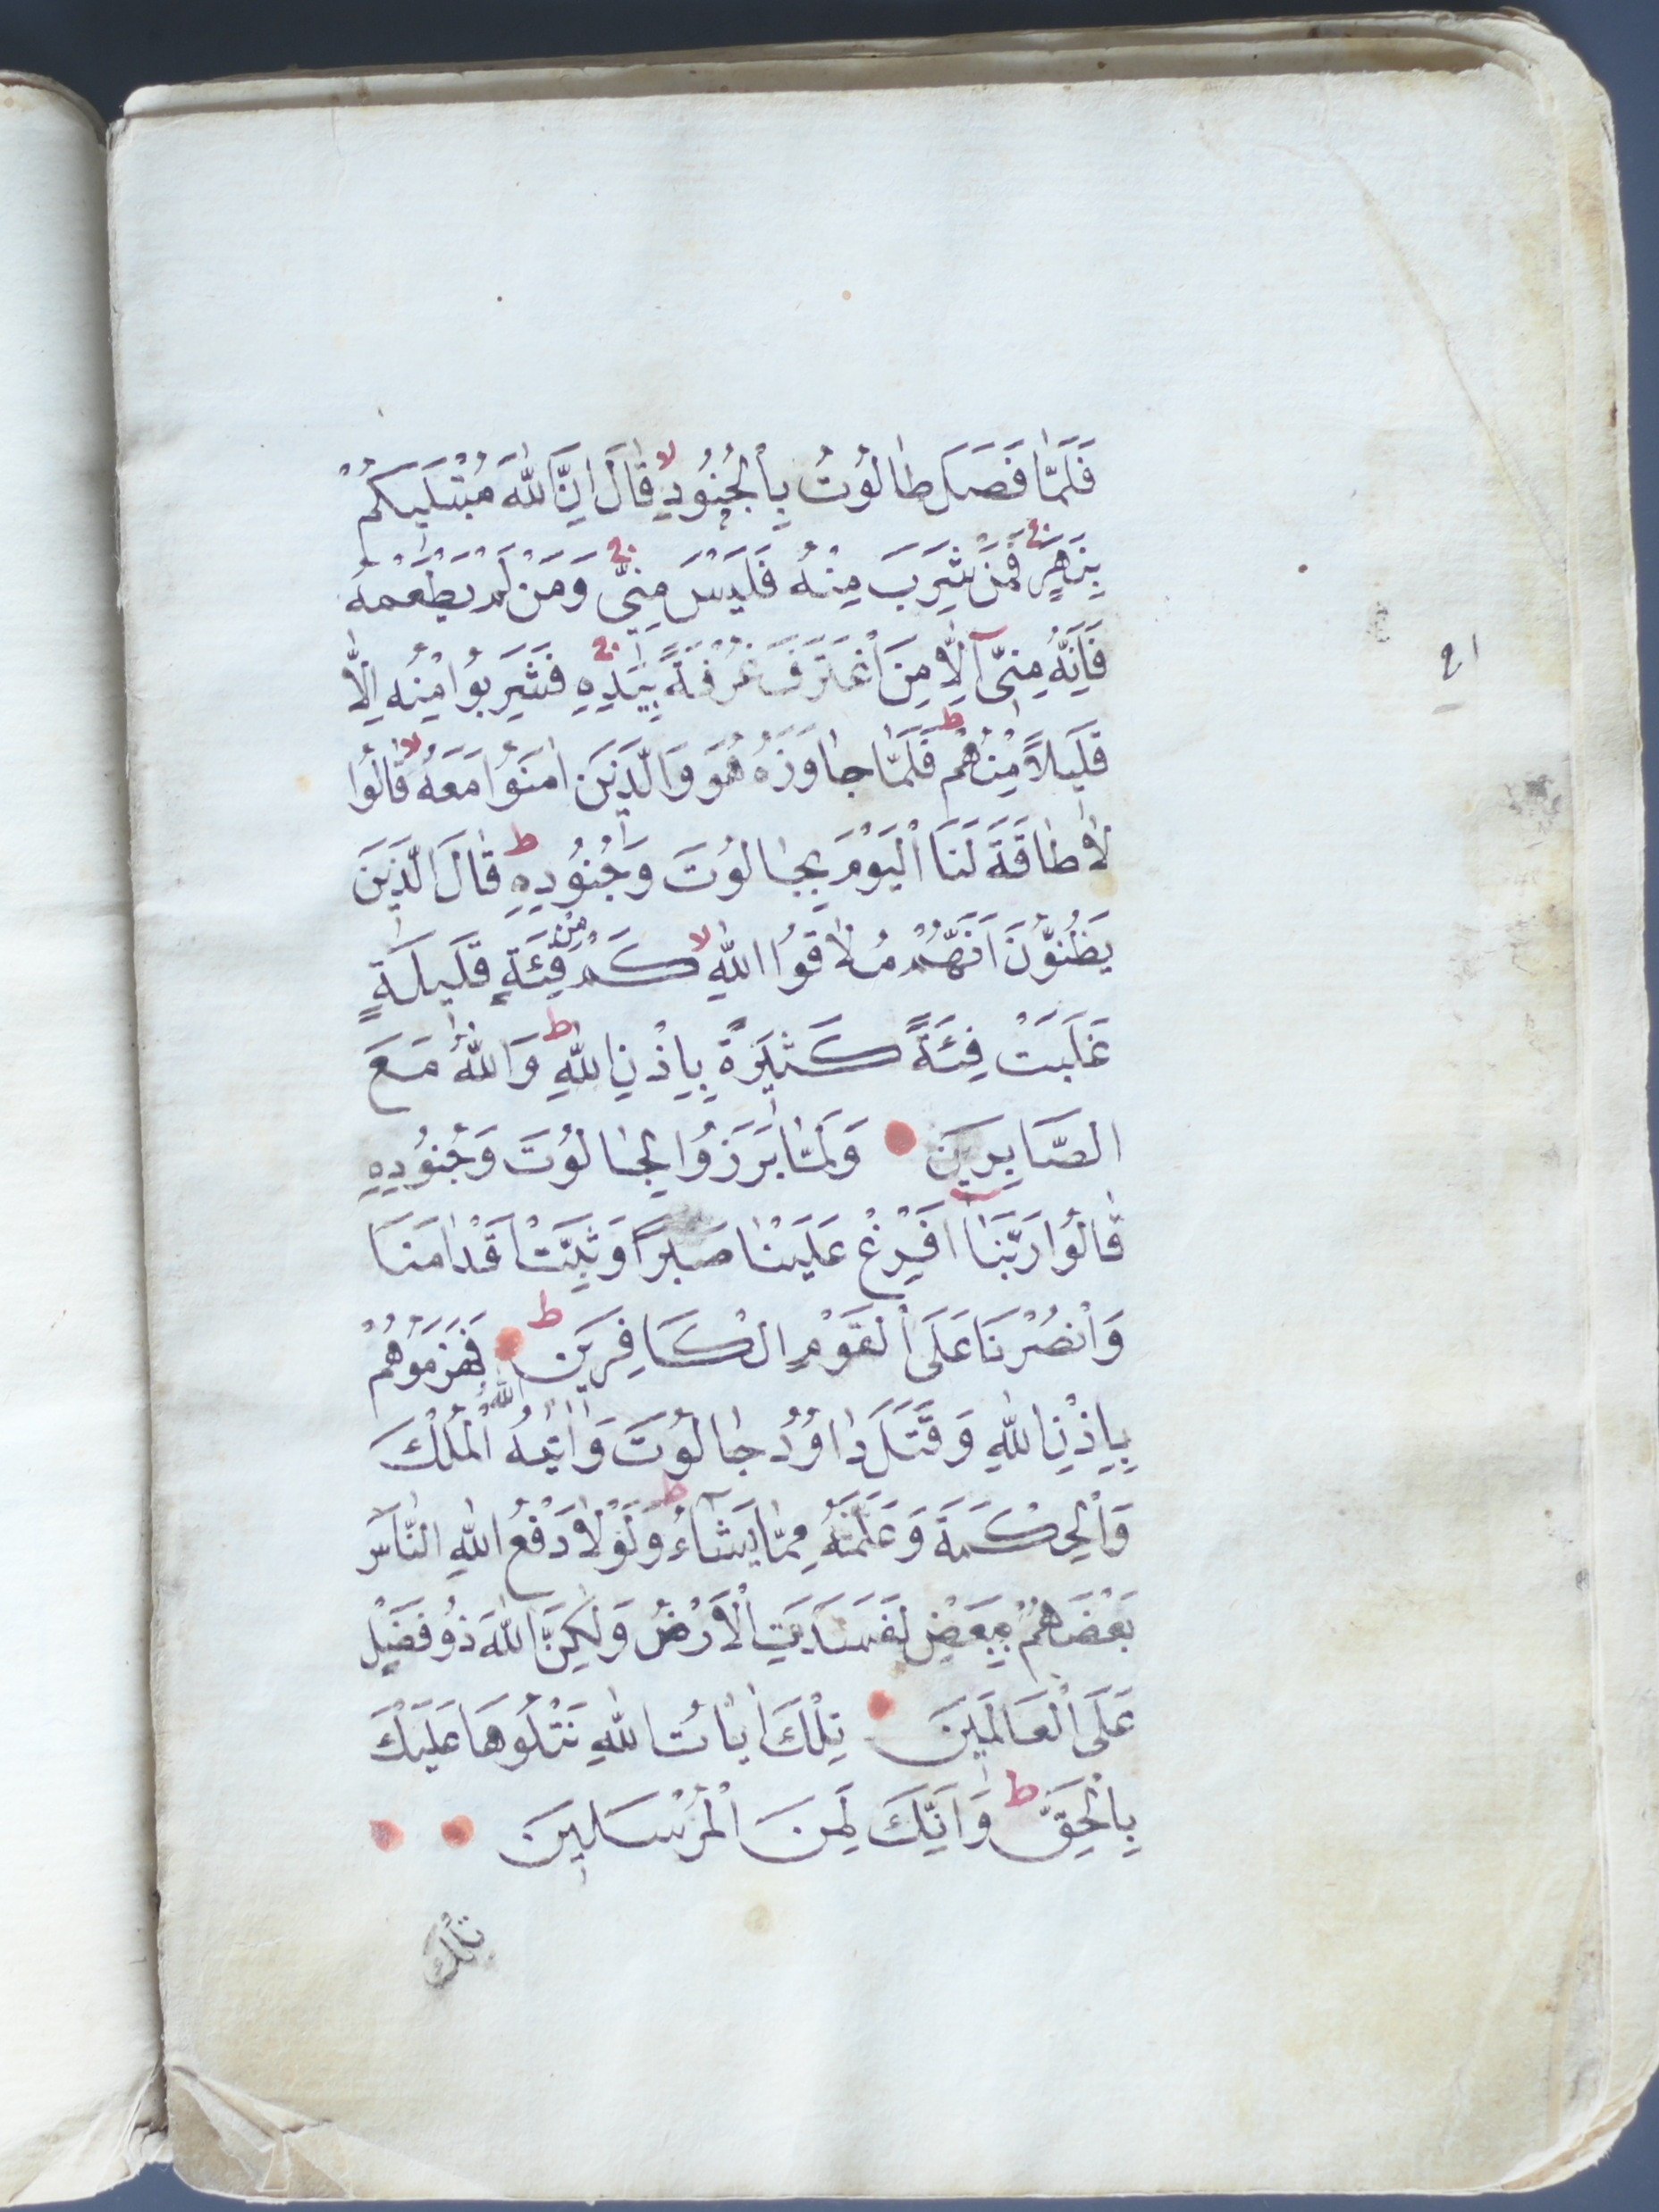 فَلَمَّا فَصَلَ طَالُوتُ بِالْجُنُودِ ۙ قَالَ اِنَّ اللّٰهَ مُبْتَلِيكُمْ
بِنَهَرٍ ۚ فَمَنْ شَرِبَ مِنْهُ فَلَيْسَ مِنِّى ۚ وَمَنْ لَمْ يَطْعَمْهُ
فَاِنَّهُ مِنِّىٓ اِلَّا مَنِ اغْتَرَفَ غُرْفَةً بِيَدِهِ ۚ فَشَرِبُوا مِنْهُ اِلَّا
قَلِيلًا مِنْهُمْ ط فَلَمَّا جَاوَزَهُ هُوَ وَالَّذِينَ اٰمَنُوا مَعَهُ ۙ قَالُوا
لَا طَاقَةَ لَنَا الْيَوْمَ بِجَالُوتَ وَجُنُودِهِ ط قَالَ الَّذِينَ
يَظُنُّونَ اَنَّهُمْ مُلَاقُوا اللّٰهِ ۙ كَمْ مِنْ فِئَةٍ قَلِيلَةٍ
غَلَبَتْ فِئَةً كَثِيرَةً بِاِذْنِ اللّٰهِ ط وَاللّٰهُ مَعَ
الصَّابِرِينَ وَلَمَّا بَرَزُوا لِجَالُوتَ وَجُنُودِهِ
قَالُوا رَبَّنَآ اَفْرِغْ عَلَيْنَا صَبْرًا وَثَبِّتْ اَقْدَامَنَا
وَانْصُرْنَا عَلَى الْقَوْمِ الْكَافِرِينَ ط فَهَزَمُوهُمْ
بِاِذْنِ اللّٰهِ وَقَتَلَ دَاوُدُ جَالُوتَ وَاٰتٰيهُ اللّٰهُ الْمُلْكَ
وَالْحِكْمَةَ وَعَلَّمَهُ مِمَّا يَشَآءُ ط وَلَوْلَا دَفْعُ اللّٰهِ النَّاسَ
بَعْضَهُمْ بِبَعْضٍ لَفَسَدَتِ الْاَرْضُ وَلٰكِنَّ اللّٰهَ ذُو فَضْلٍ
عَلَى الْعَالَمِينَ تِلْكَ اٰيَاتُ اللّٰهِ نَتْلُوهَا عَلَيْكَ
بِالْحَقِّ ط وَاِنَّكَ لَمِنَ الْمُرْسَلِينَ
تلك